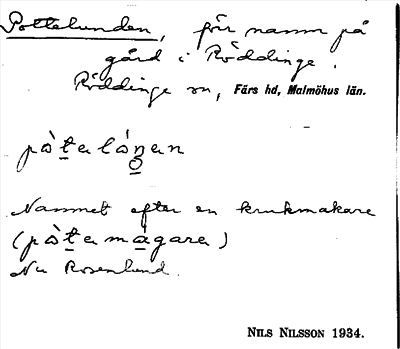 Pottelunden, förr namn på
gård i Röddinge.
Röddinge sn, Färs hd, Malmöhus län.
pòṯəlónən
Namnet efter en krukmakare
(pòṯəmágarə)
Nu Rosenlund.
NILS NILSSON 1934.